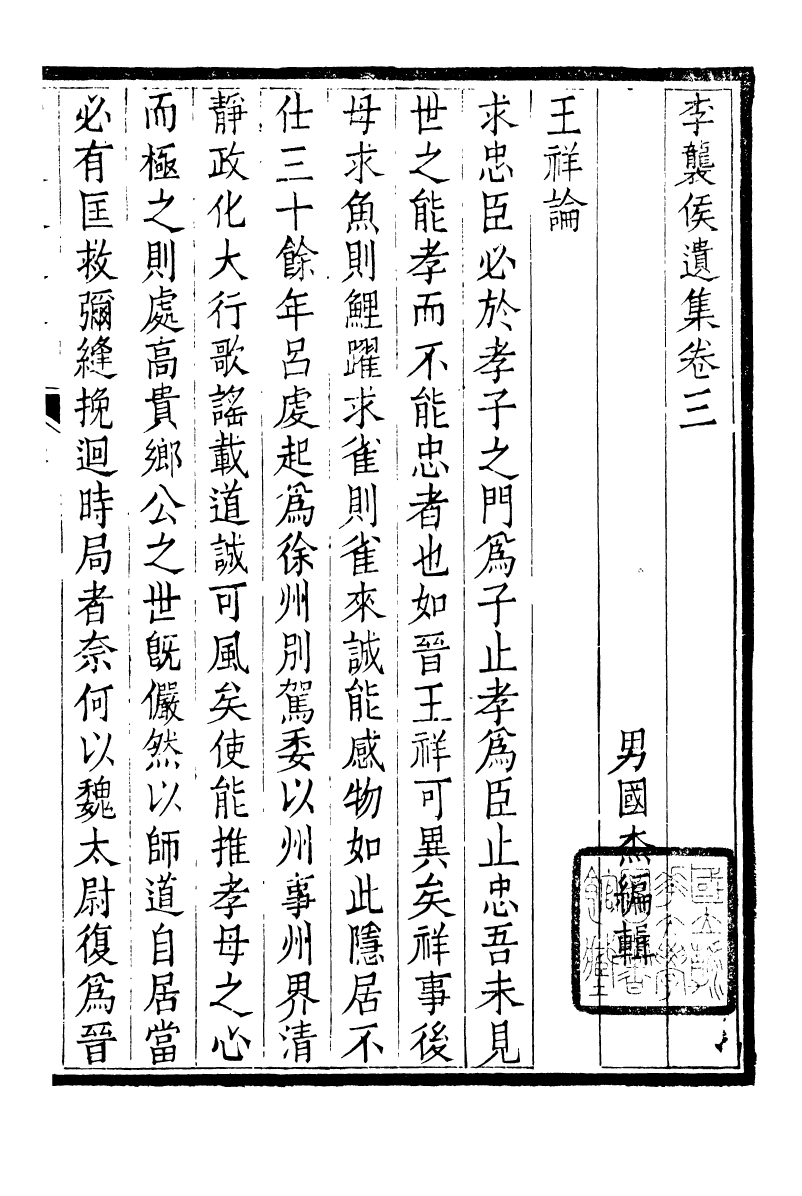 李襲侯遺集卷三
男國杰編輯
王祥論
求忠臣必於孝子之門爲子止孝爲臣止忠吾未見
世之能孝而不能忠者也如晉王祥可異矣祥事後
母求魚則鯉躍求雀則雀來誠能感物如此隱居不
仕三十餘年呂虔起爲徐州別駕委以州事州界清
靜政化大行歌謠載道誠可風矣使能推孝母之心
而極之則處高貴鄉公之世旣儼然以師道自居當
必有匡救彌縫挽迴時局者奈何以魏太尉復爲晉